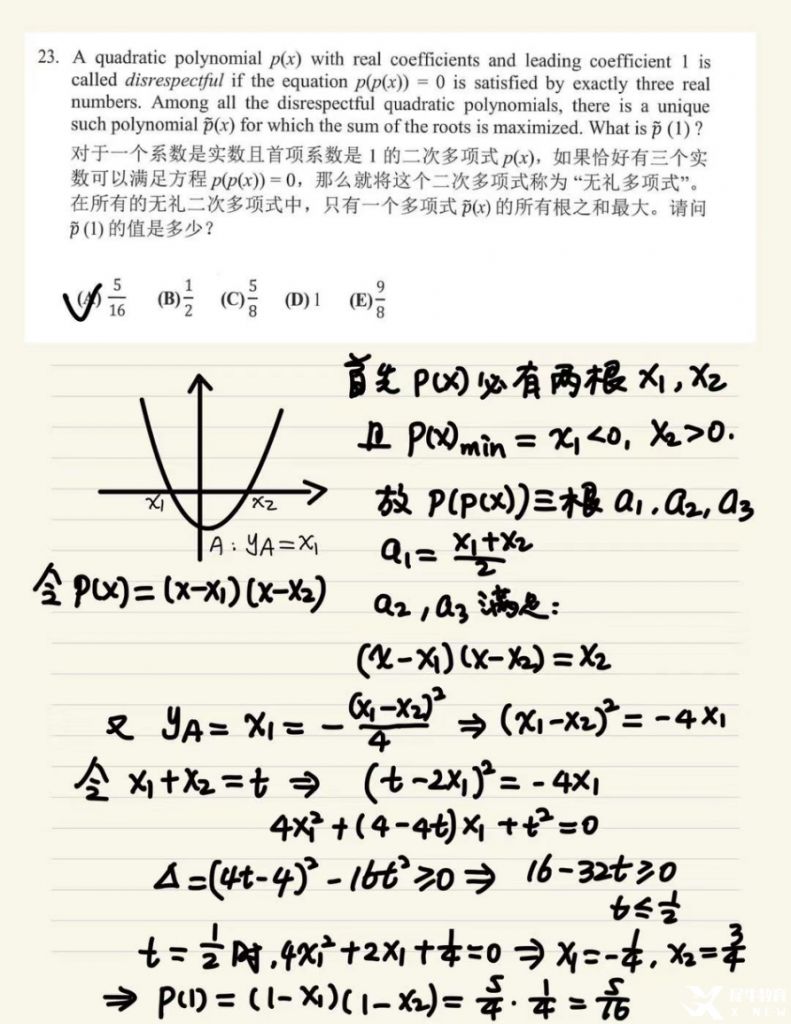 23. A quadratic polynomial p(x) with real coefficients and leading coefficient 1 is
called disrespectful if the equation p(p(x)) = 0 is satisfied by exactly three real
numbers. Among all the disrespectful quadratic polynomials, there is a unique
such polynomial p̃(x) for which the sum of the roots is maximized. What is p̃ (1) ?
对于一个系数是实数且首项系数是 1 的二次多项式 p(x)，如果恰好有三个实
数可以满足方程 p(p(x)) = 0，那么就将这个二次多项式称为 “无礼多项式”。
在所有的无礼二次多项式中，只有一个多项式 p̃(x) 的所有根之和最大。请问
p̃ (1) 的值是多少？
(A) 5/16 (B) 1/2 (C) 5/8 (D) 1 (E) 9/8
首先 P(x) 必有两根 x₁, x₂
且 P(x)min = x₁<0, x₂>0.
故 P(P(x)) 三根 a₁, a₂, a₃
x₁ x₂
A: yA=x₁
a₁ = (x₁+x₂)/2
令 P(x) = (x-x₁)(x-x₂)
a₂, a₃ 满足:
(x-x₁)(x-x₂) = x₂
又 yA = x₁ = -(x₁-x₂)²/4 ⇒ (x₁-x₂)² = -4x₁
令 x₁+x₂ = t ⇒ (t-2x₁)² = -4x₁
4x₁² + (4-4t)x₁ + t² = 0
Δ = (4t-4)² - 16t² ≥ 0 ⇒ 16-32t ≥ 0
t ≤ 1/2
t = 1/2 时, 4x₁²+2x₁+1/4=0 ⇒ x₁=-1/4, x₂=3/4
⇒ P(1) = (1-x₁)(1-x₂) = 5/4 · 1/4 = 5/16
X NEW